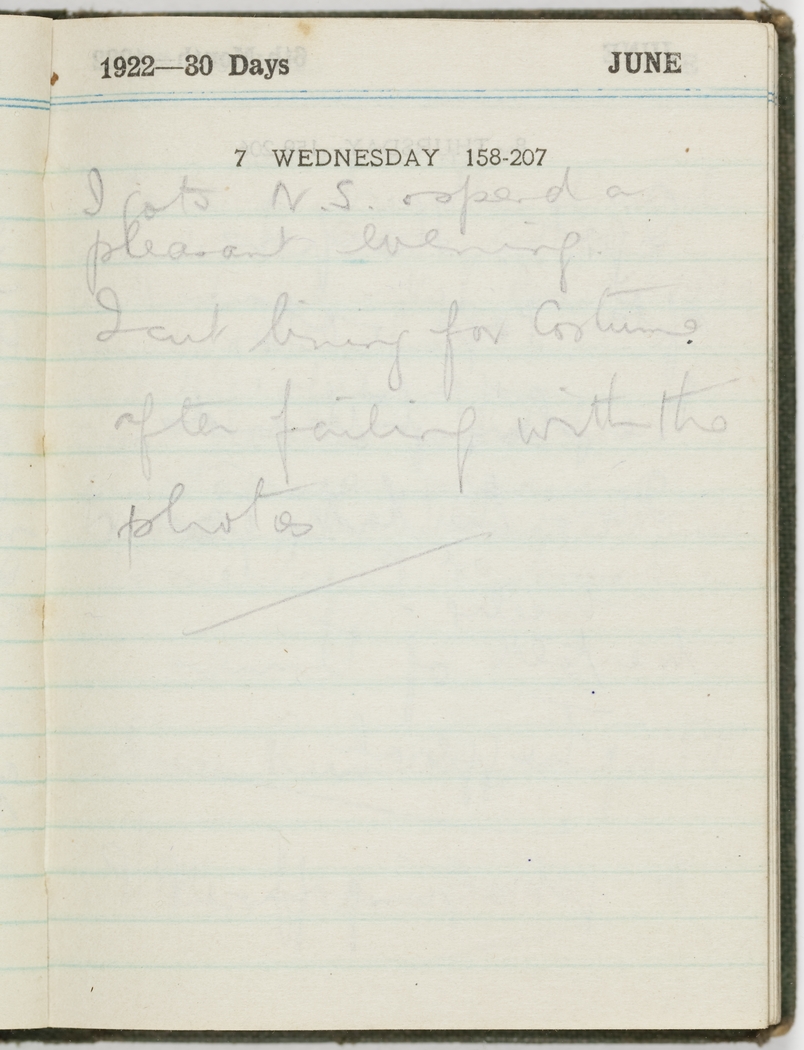 1922—30 Days JUNE
7 WEDNESDAY 158-207
I go to N.S. & spend a
pleasant evening.
I cut lining for Costume
after failing with the
photos